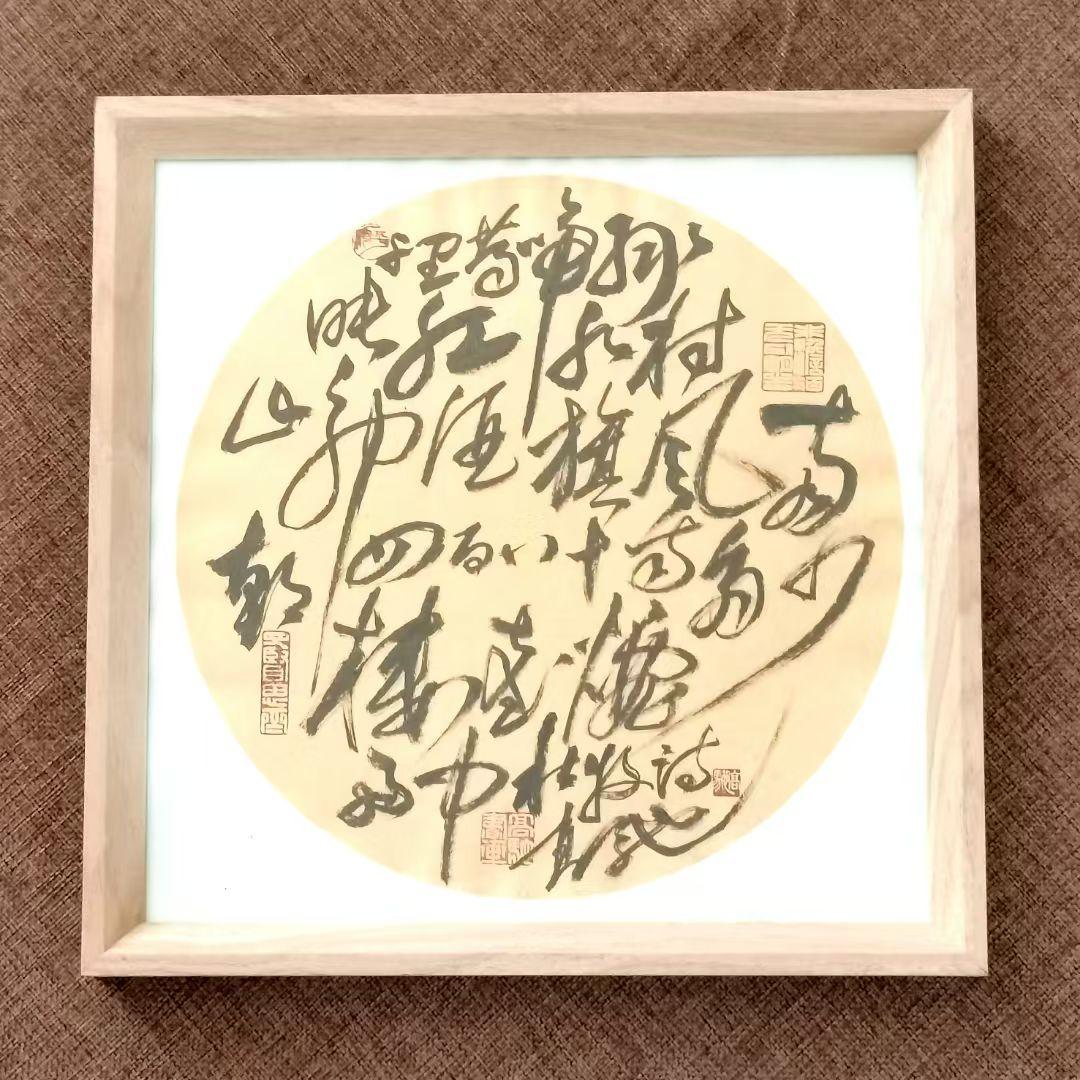 千里莺啼绿
映红水村
山郭酒旗风南
朝四百八十寺多少
楼台烟
雨中杜牧诗
高驰